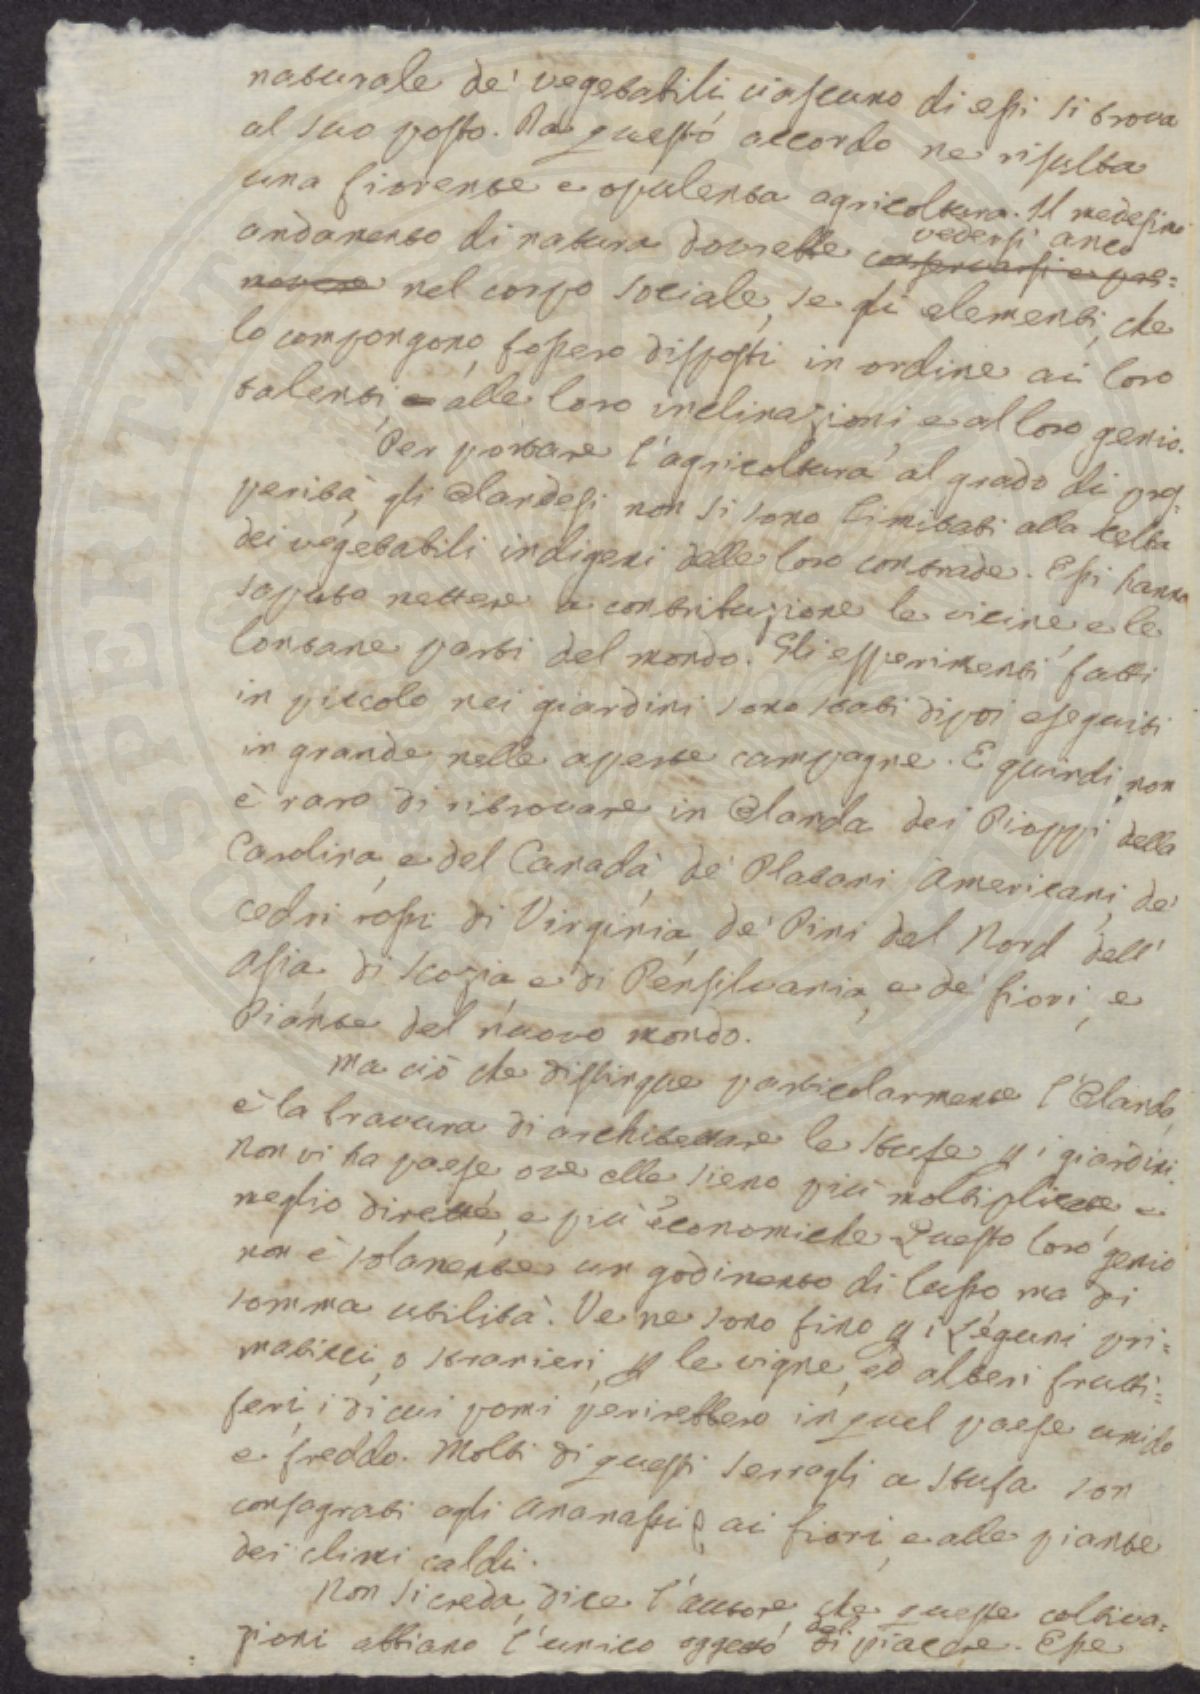 naturale de' vegetabili ciascuno di essi si trova
al suo posto. Da questo accordo ne risulta
una fiorente e opulenta agricoltura. Il medesimo
vedersi anco
andamento di natura dovrebbe conservarsi e pro=
movere nel corpo sociale, se gli elementi, che
lo compongono, fossero disposti in ordine ai loro
talenti, alle loro inclinazioni e al loro genio.
Per portare l'agricoltura al grado di pros=
perità, gli Olandesi non si sono limitati alla scelta
dei vegetabili indigeni delle loro contrade. Essi hanno
saputo mettere a contribuzione le vicine e le
lontane parti del mondo. Gli esperimenti fatti
in piccolo nei giardini sono stati dipoi eseguiti
in grande nelle aperte campagne. E quindi non
è raro di ritrovare in Olanda dei Pioppi della
Carolina, e del Canadà, de' Platani Americani, de'
cedri rossi di Virginia, de' Pini del Nord dell'
Asia, di Scozia e di Pensilvania, e de' fiori, e
Piante del nuovo mondo.
Ma ciò che distingue particolarmente l'Olanda,
è la bravura di architettare le stufe p i giardini.
Non vi ha paese ove elle sieno più moltiplicate e
meglio dirette, e più economiche. Questo loro genio
non è solamente un godimento di lusso, ma di
somma utilità. Ve ne sono fino p i Legumi pri=
maticci, o stranieri, p le vigne, ed alberi frutti=
feri, i di cui pomi perirebbero in quel paese umido
e freddo. Molti di questi serragli a stufa son
consagrati agli Ananassi, ai fiori, e alle piante
dei climi caldi.
Non si creda, dice l'autore, che queste coltiva=
zioni abbiano l'unico oggetto del
di piacere. Esse